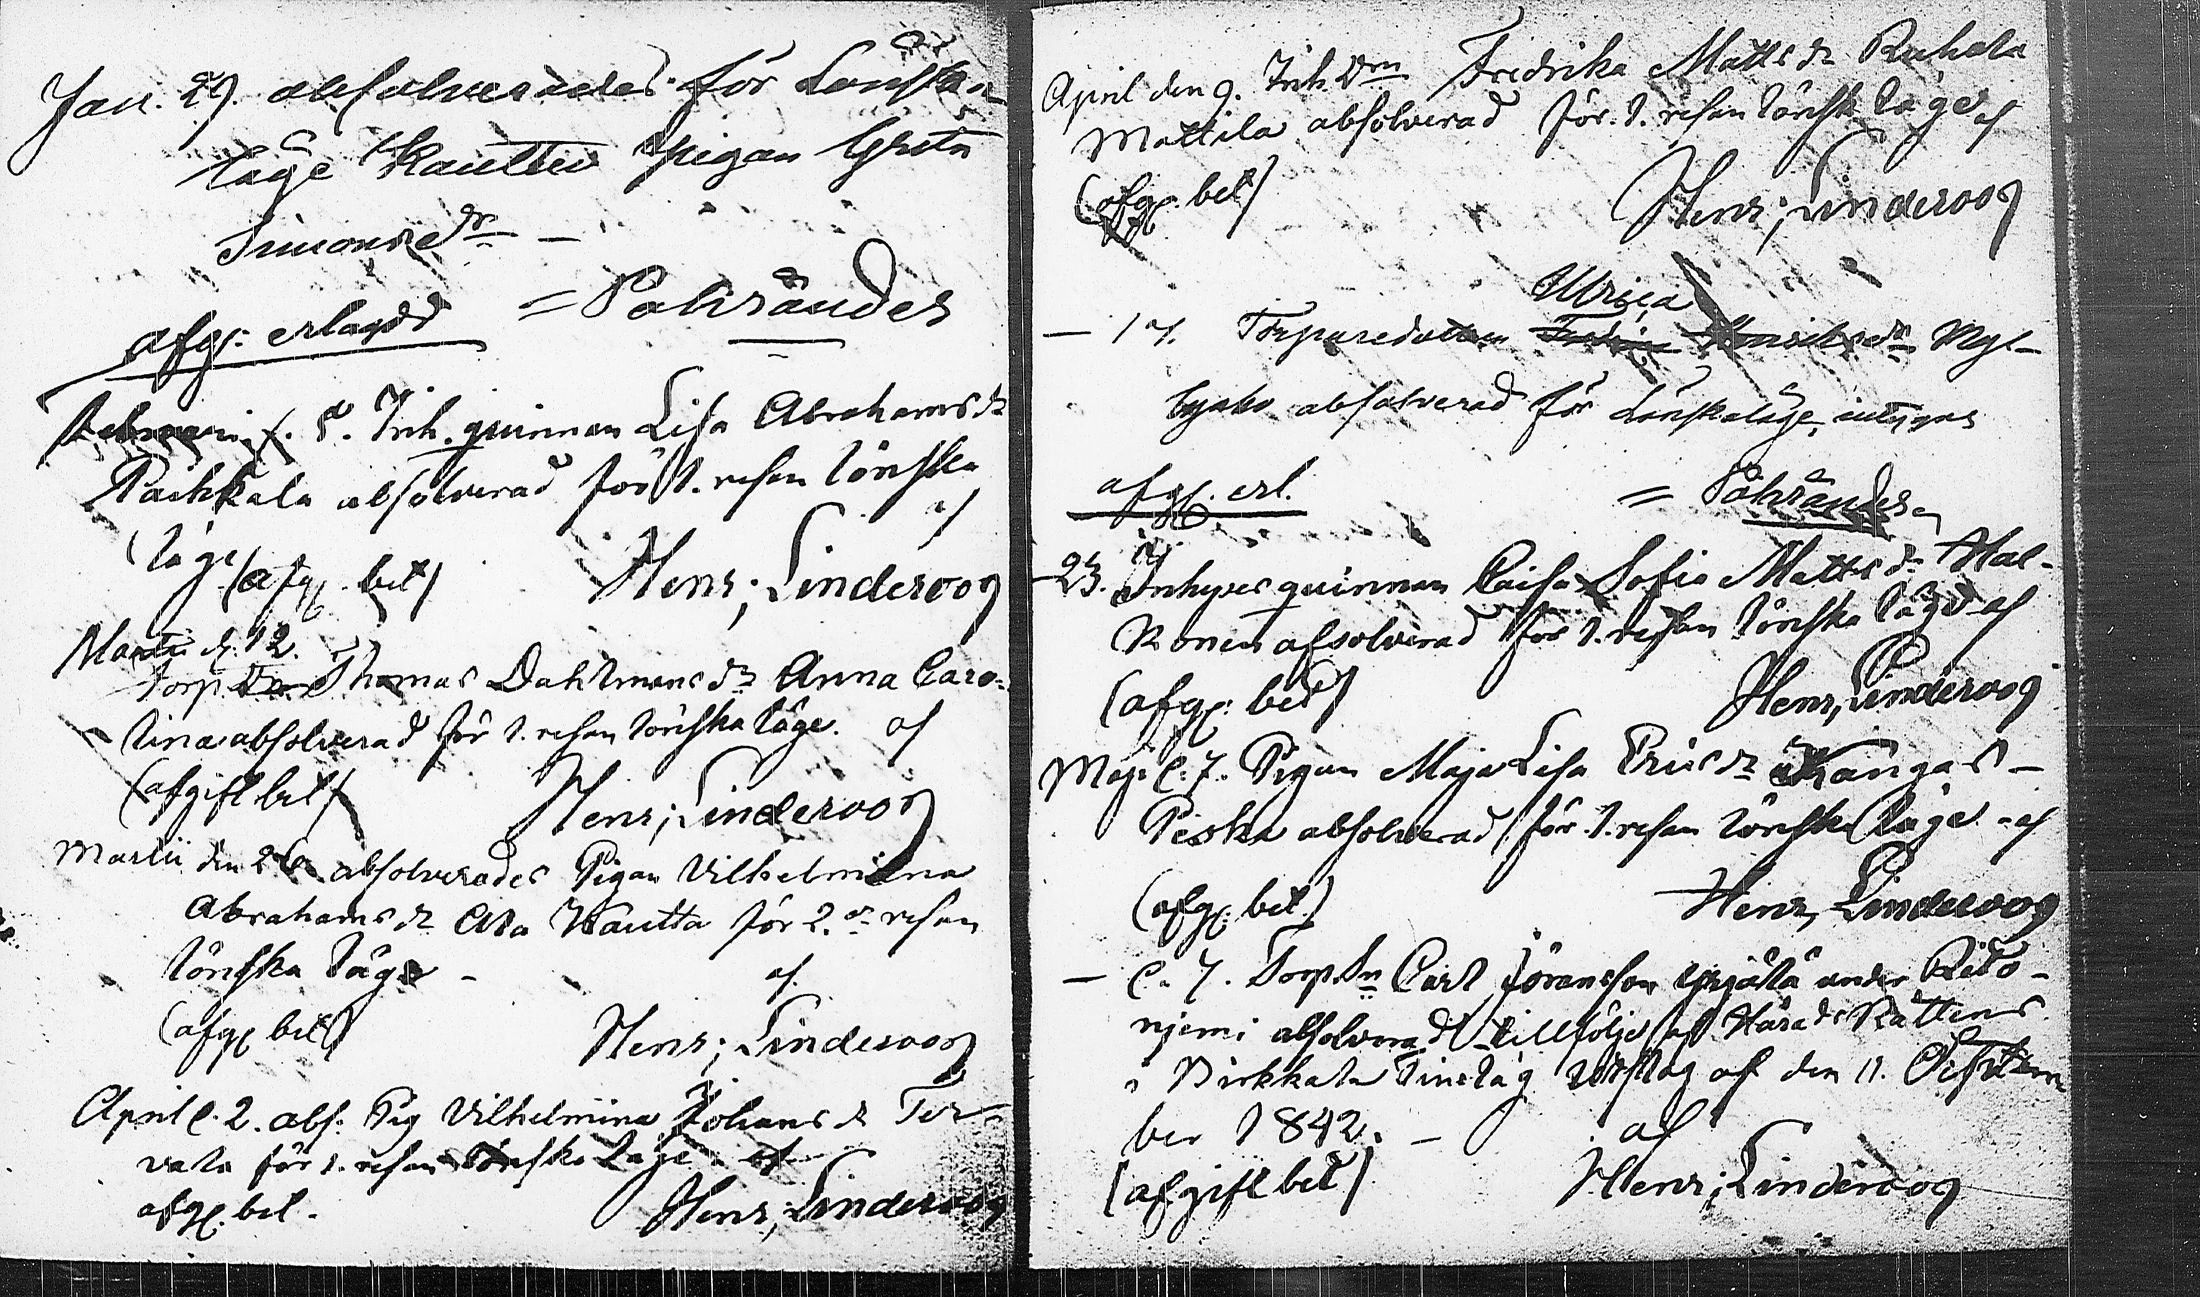 Jan. 29. absolverades för Lönska
läge Kauttu pigan Greta
Simonsdr –
afg: erlagdt = Pahränder
Februari d. 5. Inh. quinnan Lisa Abrahamsdr
Paikkala absolverad för 1. resan lönska
läge af
(afg. bet) Henr; Linderoos
Martii d. 12.
Torp. Dn Thomas Dahlmansdr Anna Caro-
lina absolverad för 1. resan lönska läge. af
(afgift bet) Henr; Linderoos
Martii den 26 absolverades Pigan Vilhelmiina
Abrahamsdr Kautta för 2. resan
lönska läge – af.
(afg. bet) Henr; Linderoos
April d. 2. abs: Pig Vilhelmina Johansdr Ter-
vala för 1. resan lönska läge af
afg. bet. Henr; Linderoos
April den 9. Inh. Drn Fredrika Mattsdr
Mattila absolverad för 1. resan lönska läge af
(afg. bet) Henr; Linderoos
Ulrica
– 17. Torparedottern Myl-
absolverad för Lönskaläge, intygas
afg. erl. = Pahränder
– 23. Inhyses quinnan Caisa Sofia Mattsdr Hal-
konen afsolverad för 1. resan lönska läge af
(afg: bet) Henr; Linderoos
Maji d. 7. Pigan Maja Lisa Ericsdr Kangas –
Peska absolverad för 1. resan lönska läge – af
(afg: bet.) Henr; Linderoos
– d. 7. Torp. Sn Carl Jöransson under
njemi absolverad till följe af Härads Rättens
i Birkkala Tinslag utslag af den 11.
ber 1842. – af
(afgift bet) Henr; Linderoos